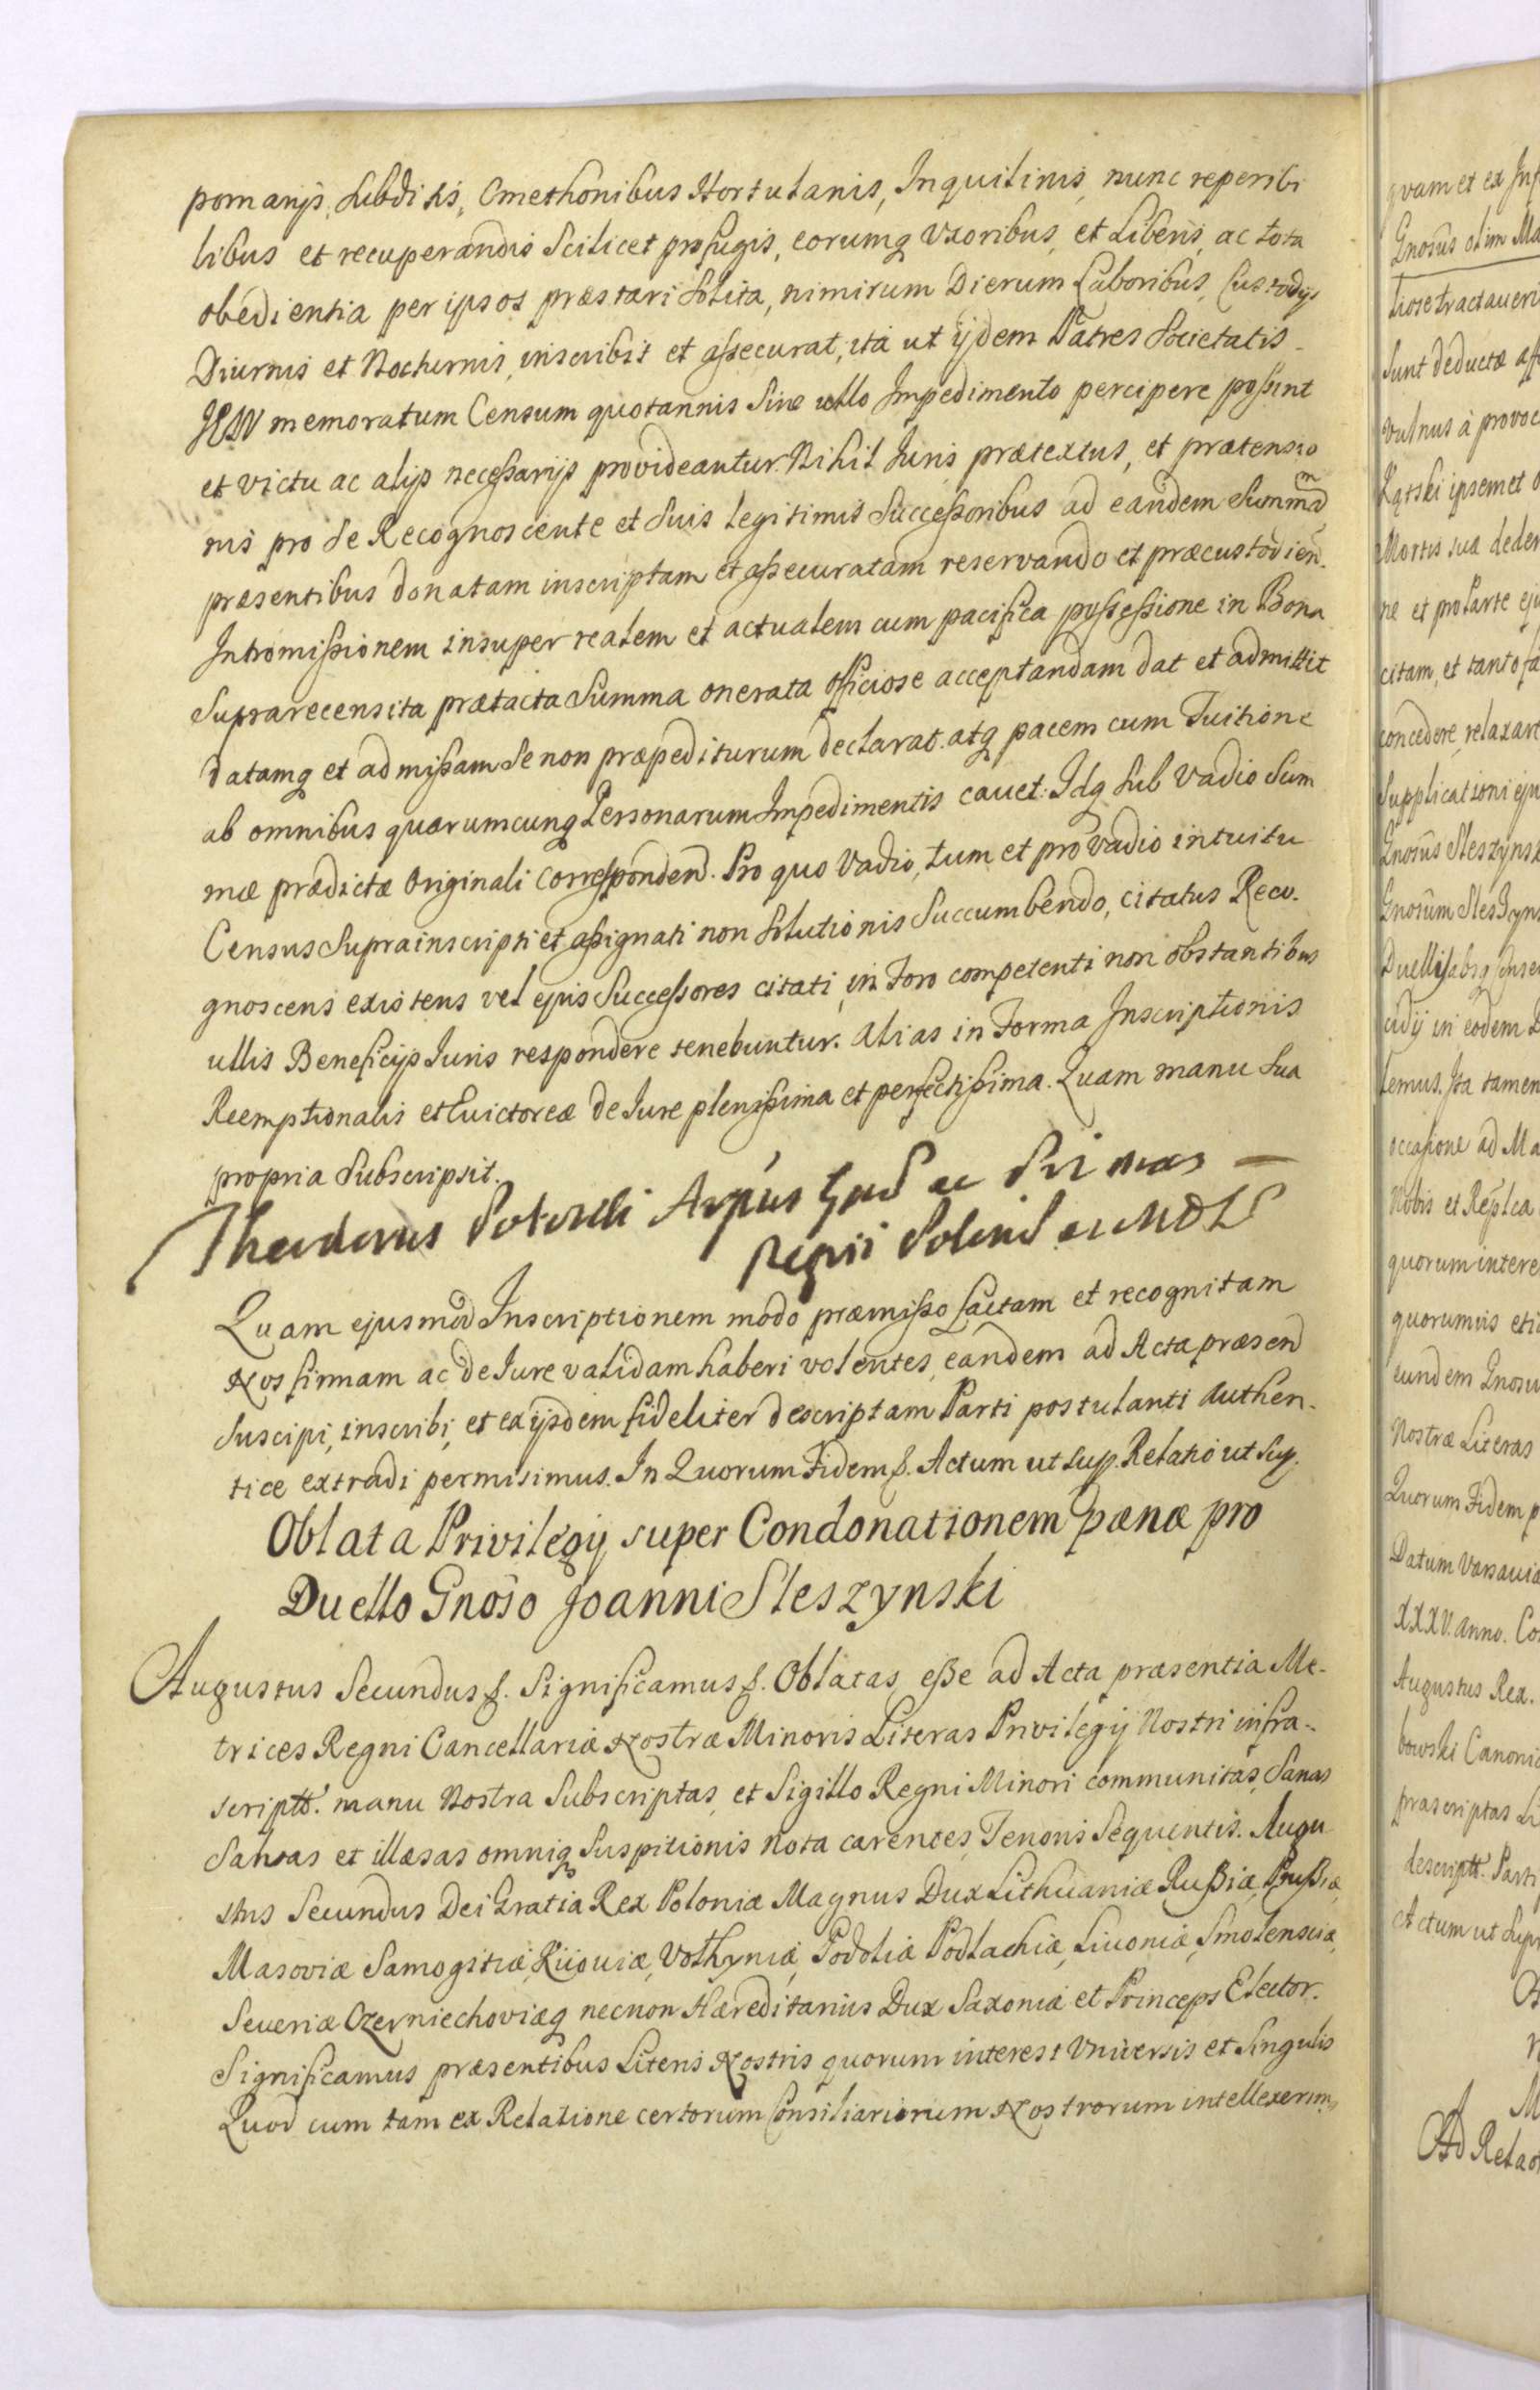 pomarijs, Subditis, Cmethonibus Hortulanis, Inquilinis, nunc reperibi
libus et recuperandis Scilicet profugis, eorumq Uxoribus, et Liberis, ac tota
obedientia per ipsos præstari solita, nimirum Dierum Laboribus, Custodijs
Diurnis et Nocturnis, inscribit et assecurat, ita ut ijdem Patres Societatis
JESU memoratum Censum quotannis Sine ullo Impedimento percipere possint
et victu ac alijs necessarijs provideantur. Nihil Juris prætextus, et prætensio
nis pro se Recognoscente et Suis legitimis Successoribus ad eandem Summam
præsentibus donatam inscriptam et assecuratam reservando et præcustodien.
Intromissionem insuper realem et actualem cum pacifica possessione in Bona
Suprarecensita prætacta Summa onerata officiose acceptandam dat et admittit
datamq et admissam Se non præpediturum declarat. atq pacem cum Tuitione
ab omnibus quarumcunq Personarum Impedimentis cavet. Idq Sub Vadio Sum
mæ prædictæ Originali correspondend. Pro quo Vadio, tum et pro vadio intuitu
Census Suprainscripti et assignati non Solutionis Succumbendo, citatus Reco.
gnoscens existens vel ejus Successores citati, in Foro competenti non obstantibus
ullis Beneficijs Juris respondere tenebuntur. Alias in Forma Inscriptionis
Reemptionalis et Evictoreæ de Jure plenissima et perfectissima. Quam manu Sua
propria Subscripsit.
Theodorus Potocki Arpus Gnes ac Primas
Regni Polon et MDL
Quam ejusmod Inscriptionem modo præmisso factam et recognitam
Nos firmam ac de Jure validam haberi volentes, eandem ad Acta præsend
Suscipi, inscribi, et ex ijsdem fideliter descriptam Parti postulanti Authen-
tice extradi permisimus. In Quorum Fidem &. Actum ut Sup. Relatio ut Sup.
Oblata Privilegij super Condonationem pænæ pro
Duello Gnoso Joanni Sleszynski
Augustus Secundus &. Significamus &. Oblatas esse ad Acta præsentia Me-
trices Regni Cancellariæ Nostræ Minoris Literas Privilegij Nostri infra-
scriptt. manu Nostra Subscriptas, et Sigillo Regni Minori communitas, Sanas
Salvas et illæsas omniq Suspitionis nota carentes, Tenoris Sequentis. Augu
stus Secundus Dei Gratia Rex Poloniæ Magnus Dux Lithuaniæ Russiæ, Prussiæ,
Masoviæ Samogitiæ, Kiioviæ, Volhyniæ, Podoliæ Podlachiæ, Livoniæ, Smolensciæ,
Severiæ Czerniechoviæq necnon Hæreditarius Dux Saxoniæ et Princeps Elector.
Significamus præsentibus Literis Nostris quorum interest Universis et Singulis
Quod cum tam ex Relatione certorum Consiliariorum Nostrorum intellexerim,
qvam et ex
Gnosus olim
tiose tractaveri
Sunt deductæ
Vulnus à provoc
Kątski ipsemet
Mortis suæ deder
ne et pro Parte
citam, et tanto
concedere, relaxare
Supplicationi eju
Gnosus Sleszynsk
Gnosum Sleszyns
Duellis absq
cidij in eodem
lemus. Ita tamen
occasione ad Ma
Nobis et Replca
quorum intere
quorumvis eti
eundem Gnosu
Nostræ Literas
Quorum Fidem p
Datum Varsaviæ
XXXV. Anno. Co
Augustus Rex.
bowski Canonic
præscriptas Li
descriptt. Parti
Actum ut Supr
M
Ad Relao